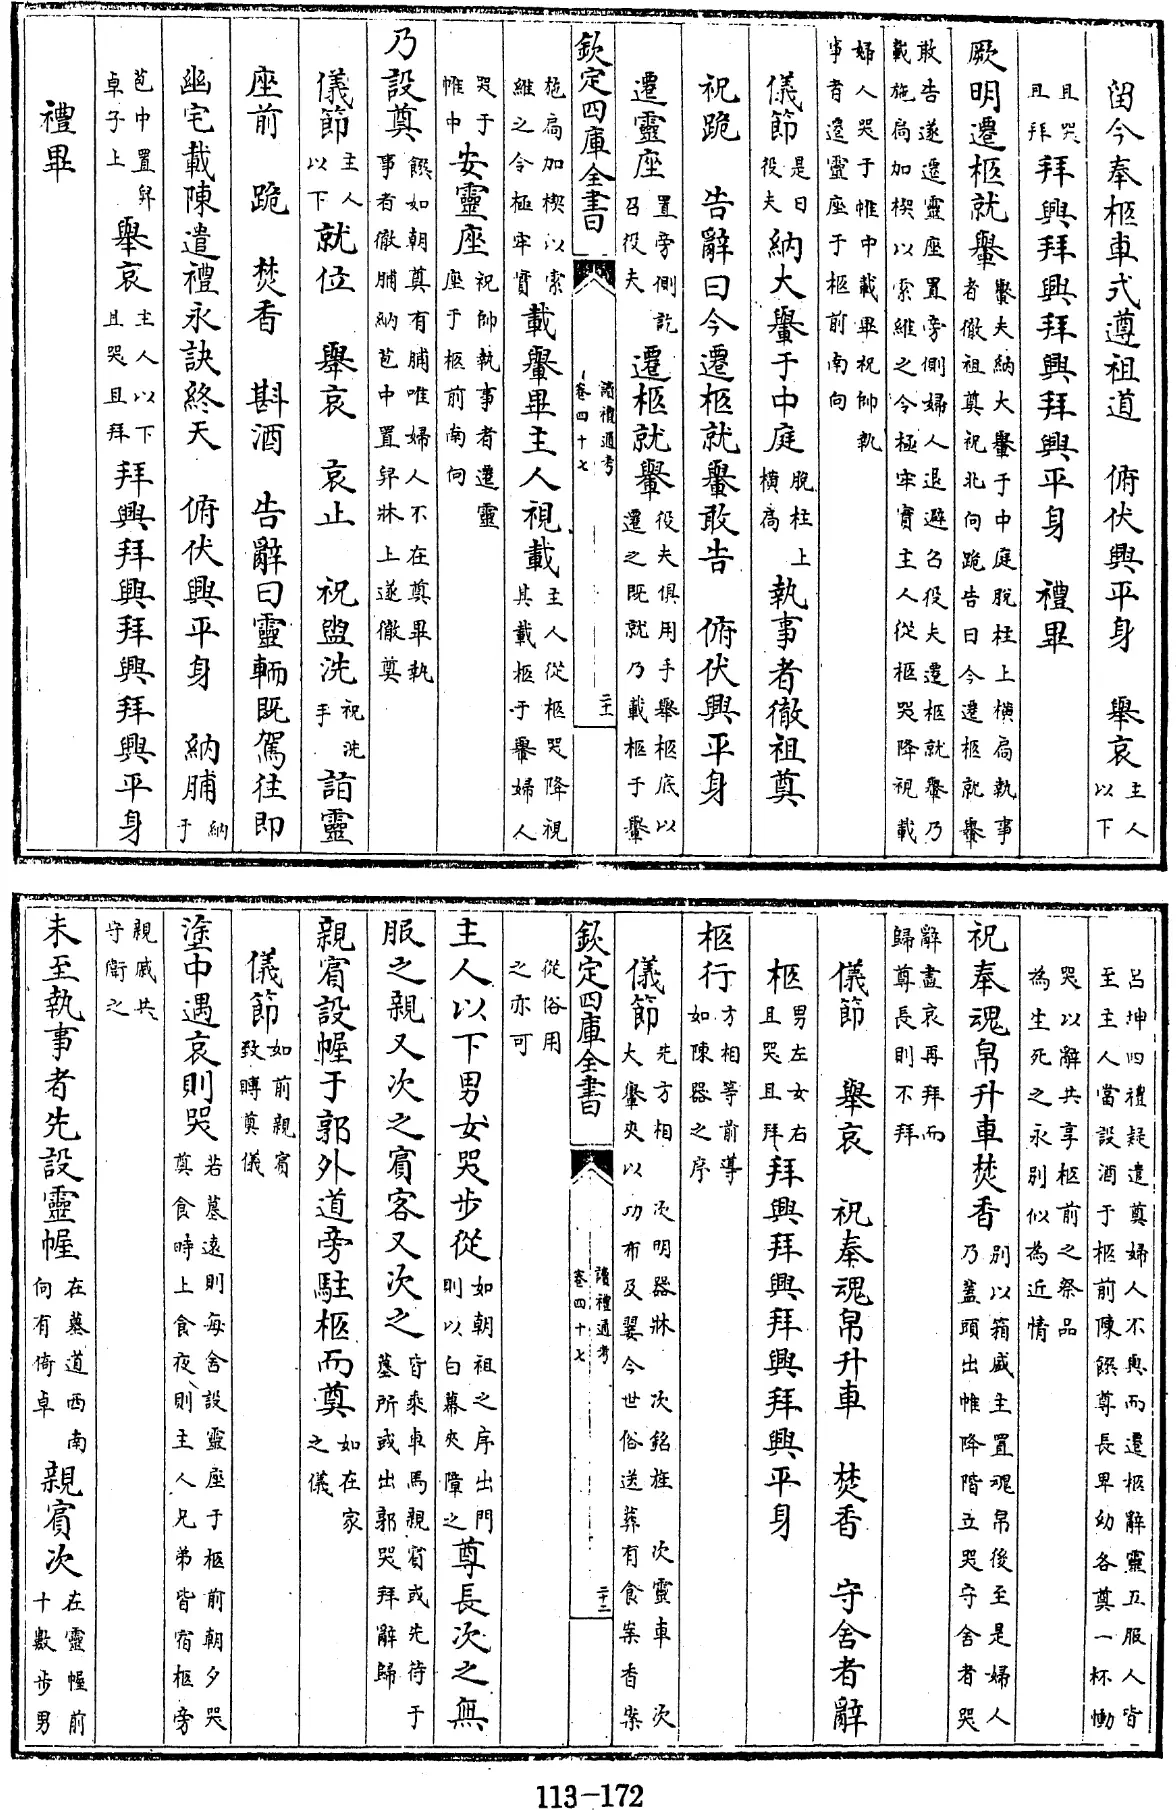 留今奉柩車式遵祖道　俯伏興平身　舉哀主人以下
且哭且拜拜興拜興拜興拜興平身　禮畢
厥明遷柩就轝轝夫納大轝于中庭脫柱上橫扃執事者徹祖奠祝北向跪告曰今遷柩就轝
敢告遂遷靈座置旁側婦人退避召役夫遷柩就轝乃載施扃加楔以索維之令極牢實主人從柩哭降視載
婦人哭于帷中載畢祝帥執事者遷靈座于柩前南向
儀節是日役夫納大轝于中庭脫柱上橫扃執事者徹祖奠
祝跪　告辭曰今遷柩就轝敢告　俯伏興平身
遷靈座置旁側訖召役夫遷柩就轝役夫俱用手舉柩底以遷之既就乃載柩于轝
欽定四庫全書　讀禮通考卷四十七　二十一
施扃加楔以索維之令極牢實載轝畢主人視載主人從柩哭降視其載柩于轝婦人
哭于帷中安靈座祝帥執事者遷靈座于柩前南向
乃設奠饌如朝奠有脯唯婦人不在奠畢執事者徹脯納苞中置舁牀上遂徹奠
儀節主人以下就位　舉哀　哀止　祝盥洗祝洗手詣靈
座前　跪　焚香　斟酒　告辭曰靈輀既駕往即
幽宅載陳遣禮永訣終天　俯伏興平身　納脯納于
苞中置舁卓子上舉哀主人以下且哭且拜拜興拜興拜興拜興平身
禮畢
呂坤四禮疑遣奠婦人不與而遷柩辭靈五服人皆至主人當設酒于柩前陳饌尊長卑幼各奠一杯慟
哭以辭共享柩前之祭品為生死之永別似為近情
祝奉魂帛升車焚香別以箱盛主置魂帛後至是婦人乃蓋頭出帷降階立哭守舍者哭
辭盡哀再拜而歸尊長則不拜
儀節　舉哀　祝奉魂帛升車　焚香　守舍者辭
柩男左女右且哭且拜拜興拜興拜興拜興平身
柩行方相等前導如陳器之序
儀節先方相　次明器牀　次銘旌　次靈車　次大轝夾以功布及翣今世俗送葬有食案香案
欽定四庫全書　讀禮通考卷四十七　二十二
從俗用之亦可
主人以下男女哭步從如朝祖之序出門則以白幕夾障之尊長次之無
服之親又次之賓客又次之皆乘車馬親賓或先待于墓所或出郭哭拜辭歸
親賓設幄于郭外道旁駐柩而奠如在家之儀
儀節如前親賓致賻奠儀
塗中遇哀則哭若墓遠則每舍設靈座于柩前朝夕哭奠食時上食夜則主人兄弟皆宿柩旁
親戚共守衛之
未至執事者先設靈幄在墓道西南向有倚卓親賓次在靈幄前十數步男
113-172